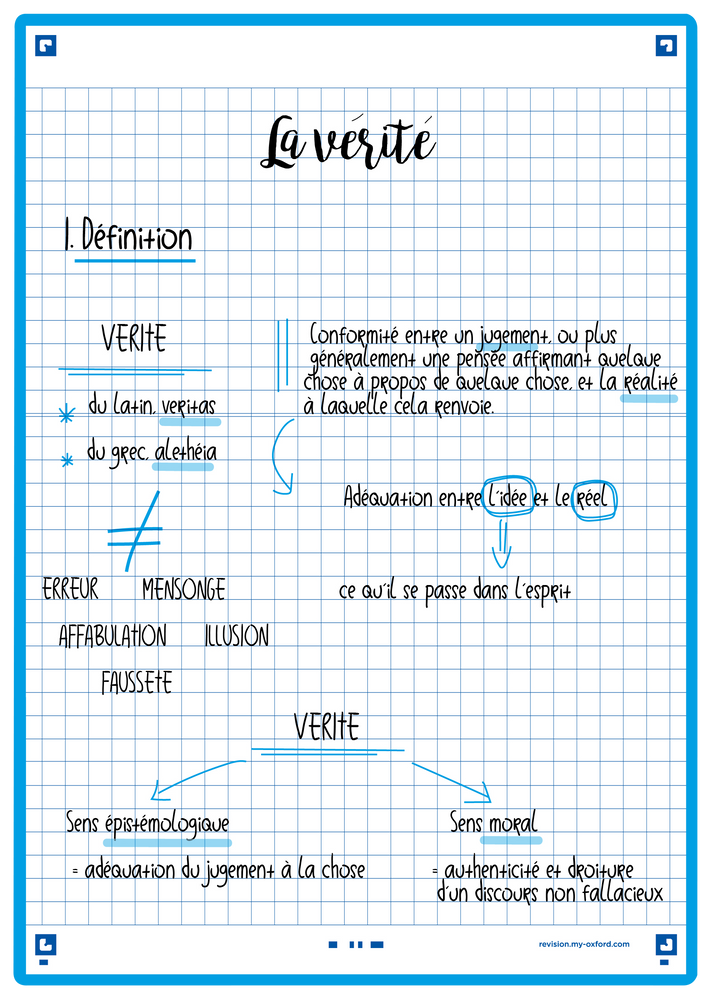 La vérité
1. Définition
VERITE
* du latin, veritas
* du grec, alethéia
Conformité entre un jugement, ou plus
généralement une pensée affirmant quelque
chose à propos de quelque chose, et la réalité
à laquelle cela renvoie.
Adéquation entre l'idée et le réel
ce qu'il se passe dans l'esprit
≠
ERREUR MENSONGE
AFFABULATION ILLUSION
FAUSSETE
VERITE
Sens épistémologique
= adéquation du jugement à la chose
Sens moral
= authenticité et droiture
d'un discours non fallacieux
revision.my-oxford.com